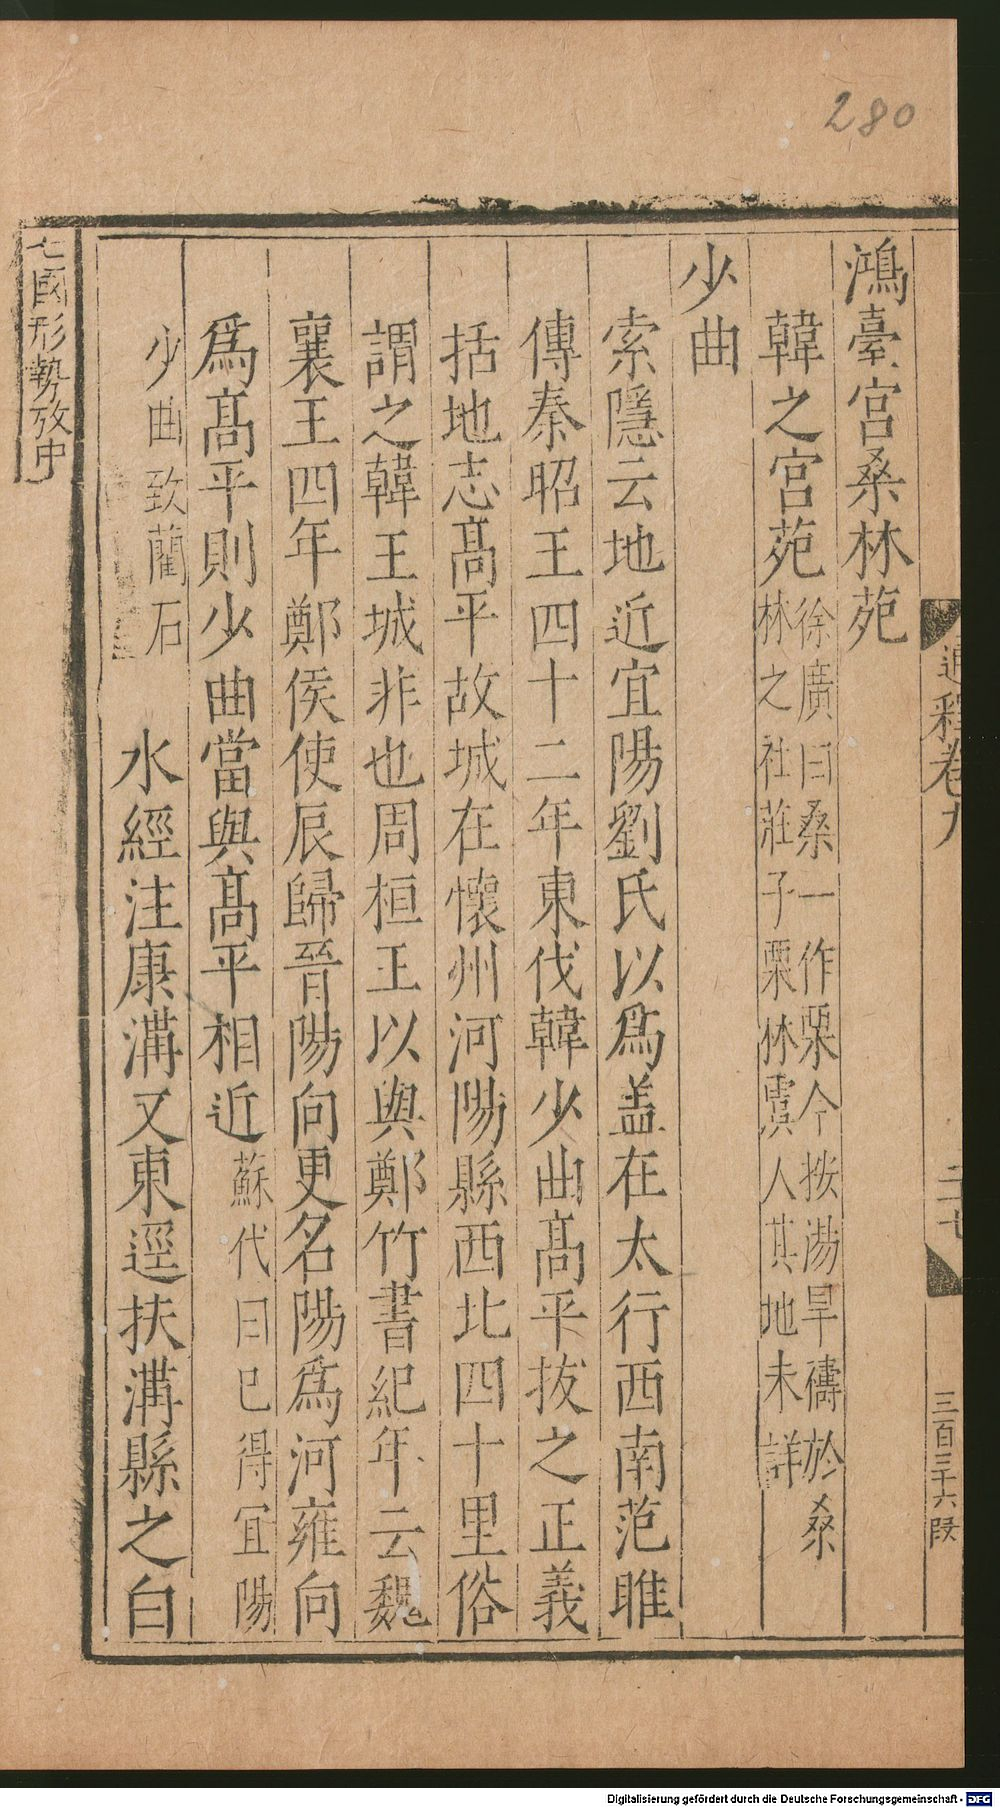 280
鴻臺宮桑林苑
韓之宮苑徐廣曰桑一作栗今按湯旱禱於桑
林之社莊子栗林虞人其地未詳
少曲
索隱云地近宜陽劉氏以為盖在太行西南范雎
傳秦昭王四十二年東伐韓少曲髙平拔之正義
括地志髙平故城在懷州河陽縣西北四十里俗
謂之韓王城非也周桓王以與鄭竹書紀年云魏
襄王四年鄭侯使辰歸晉陽向更名陽為河雍向
為髙平則少曲當與髙平相近蘇代曰已得宜陽
少曲致藺石
水經注康溝又東逕扶溝縣之白
七國形勢攷中
通釋卷九
三百三十六
Digitalisierung gefördert durch die Deutsche Forschungsgemeinschaft - DFG